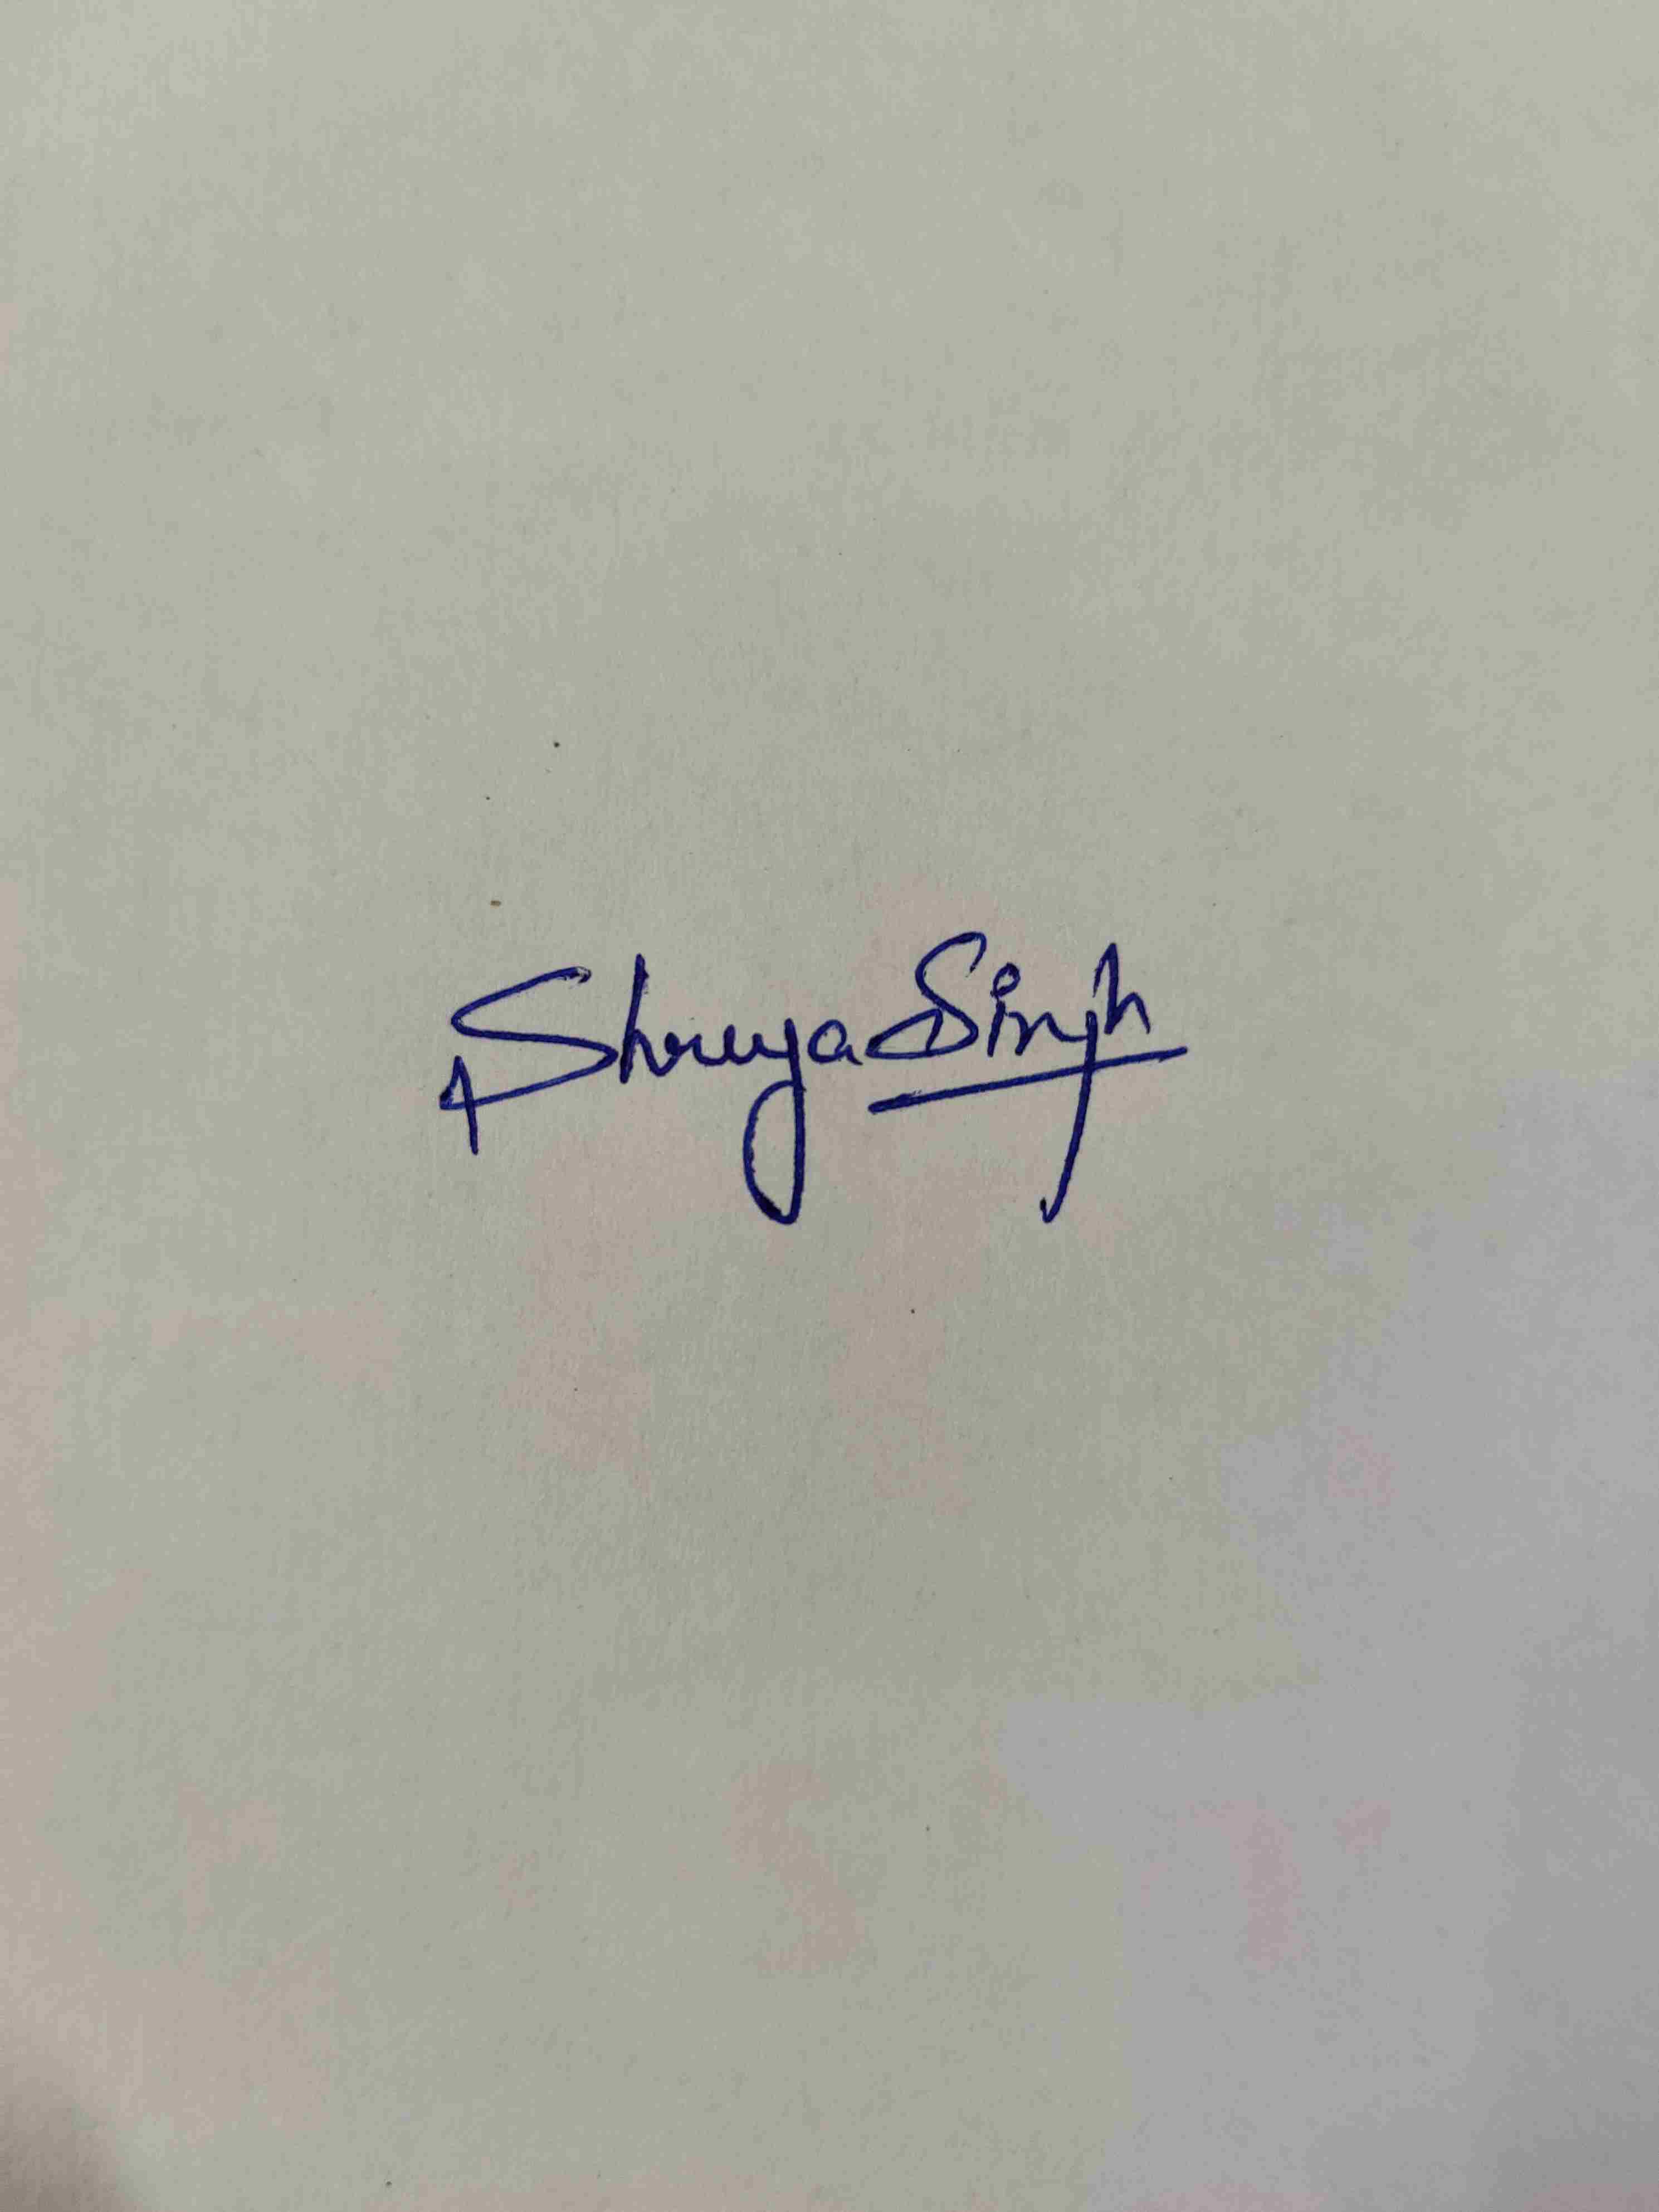 Shreya Singh